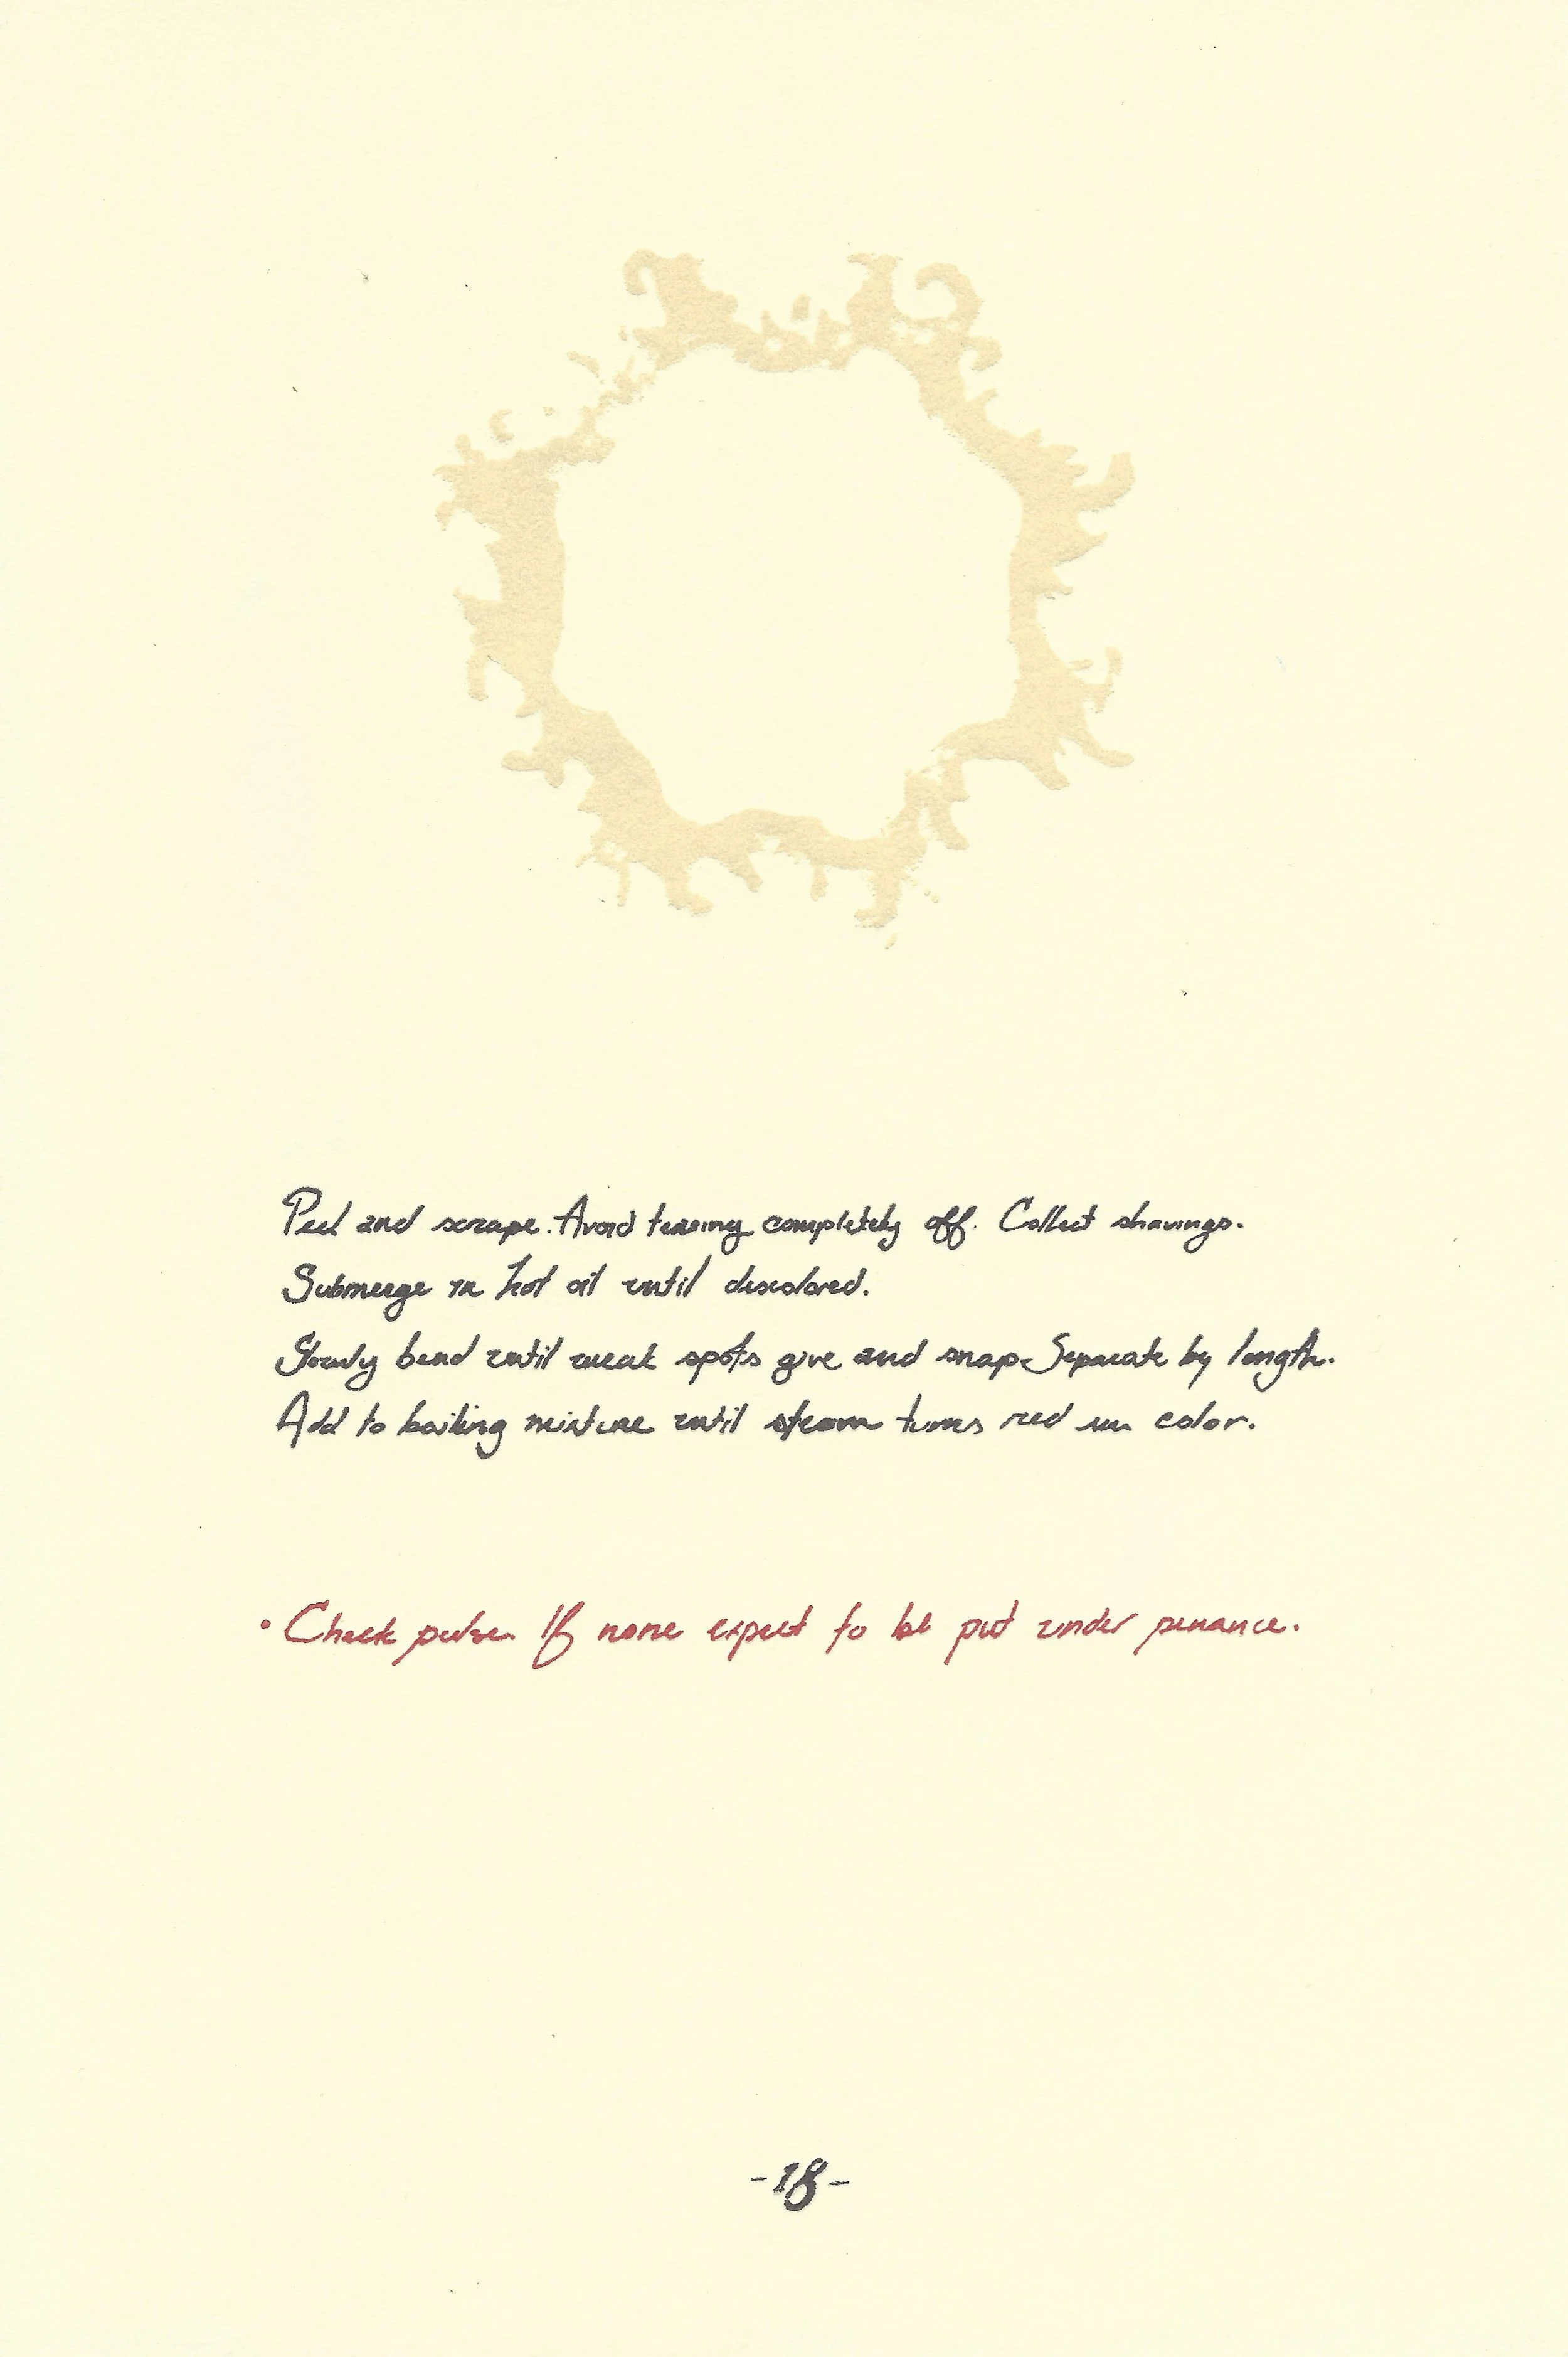 Peel and scrape. Avoid tearing completely off. Collect shavings.
Submerge in hot oil until discolored.
Slowly bend until weak spots give and snap. Separate by length.
Add to boiling mixture until steam turns red in color.
• Check pulse. If none expect to be put under penance.
-18-